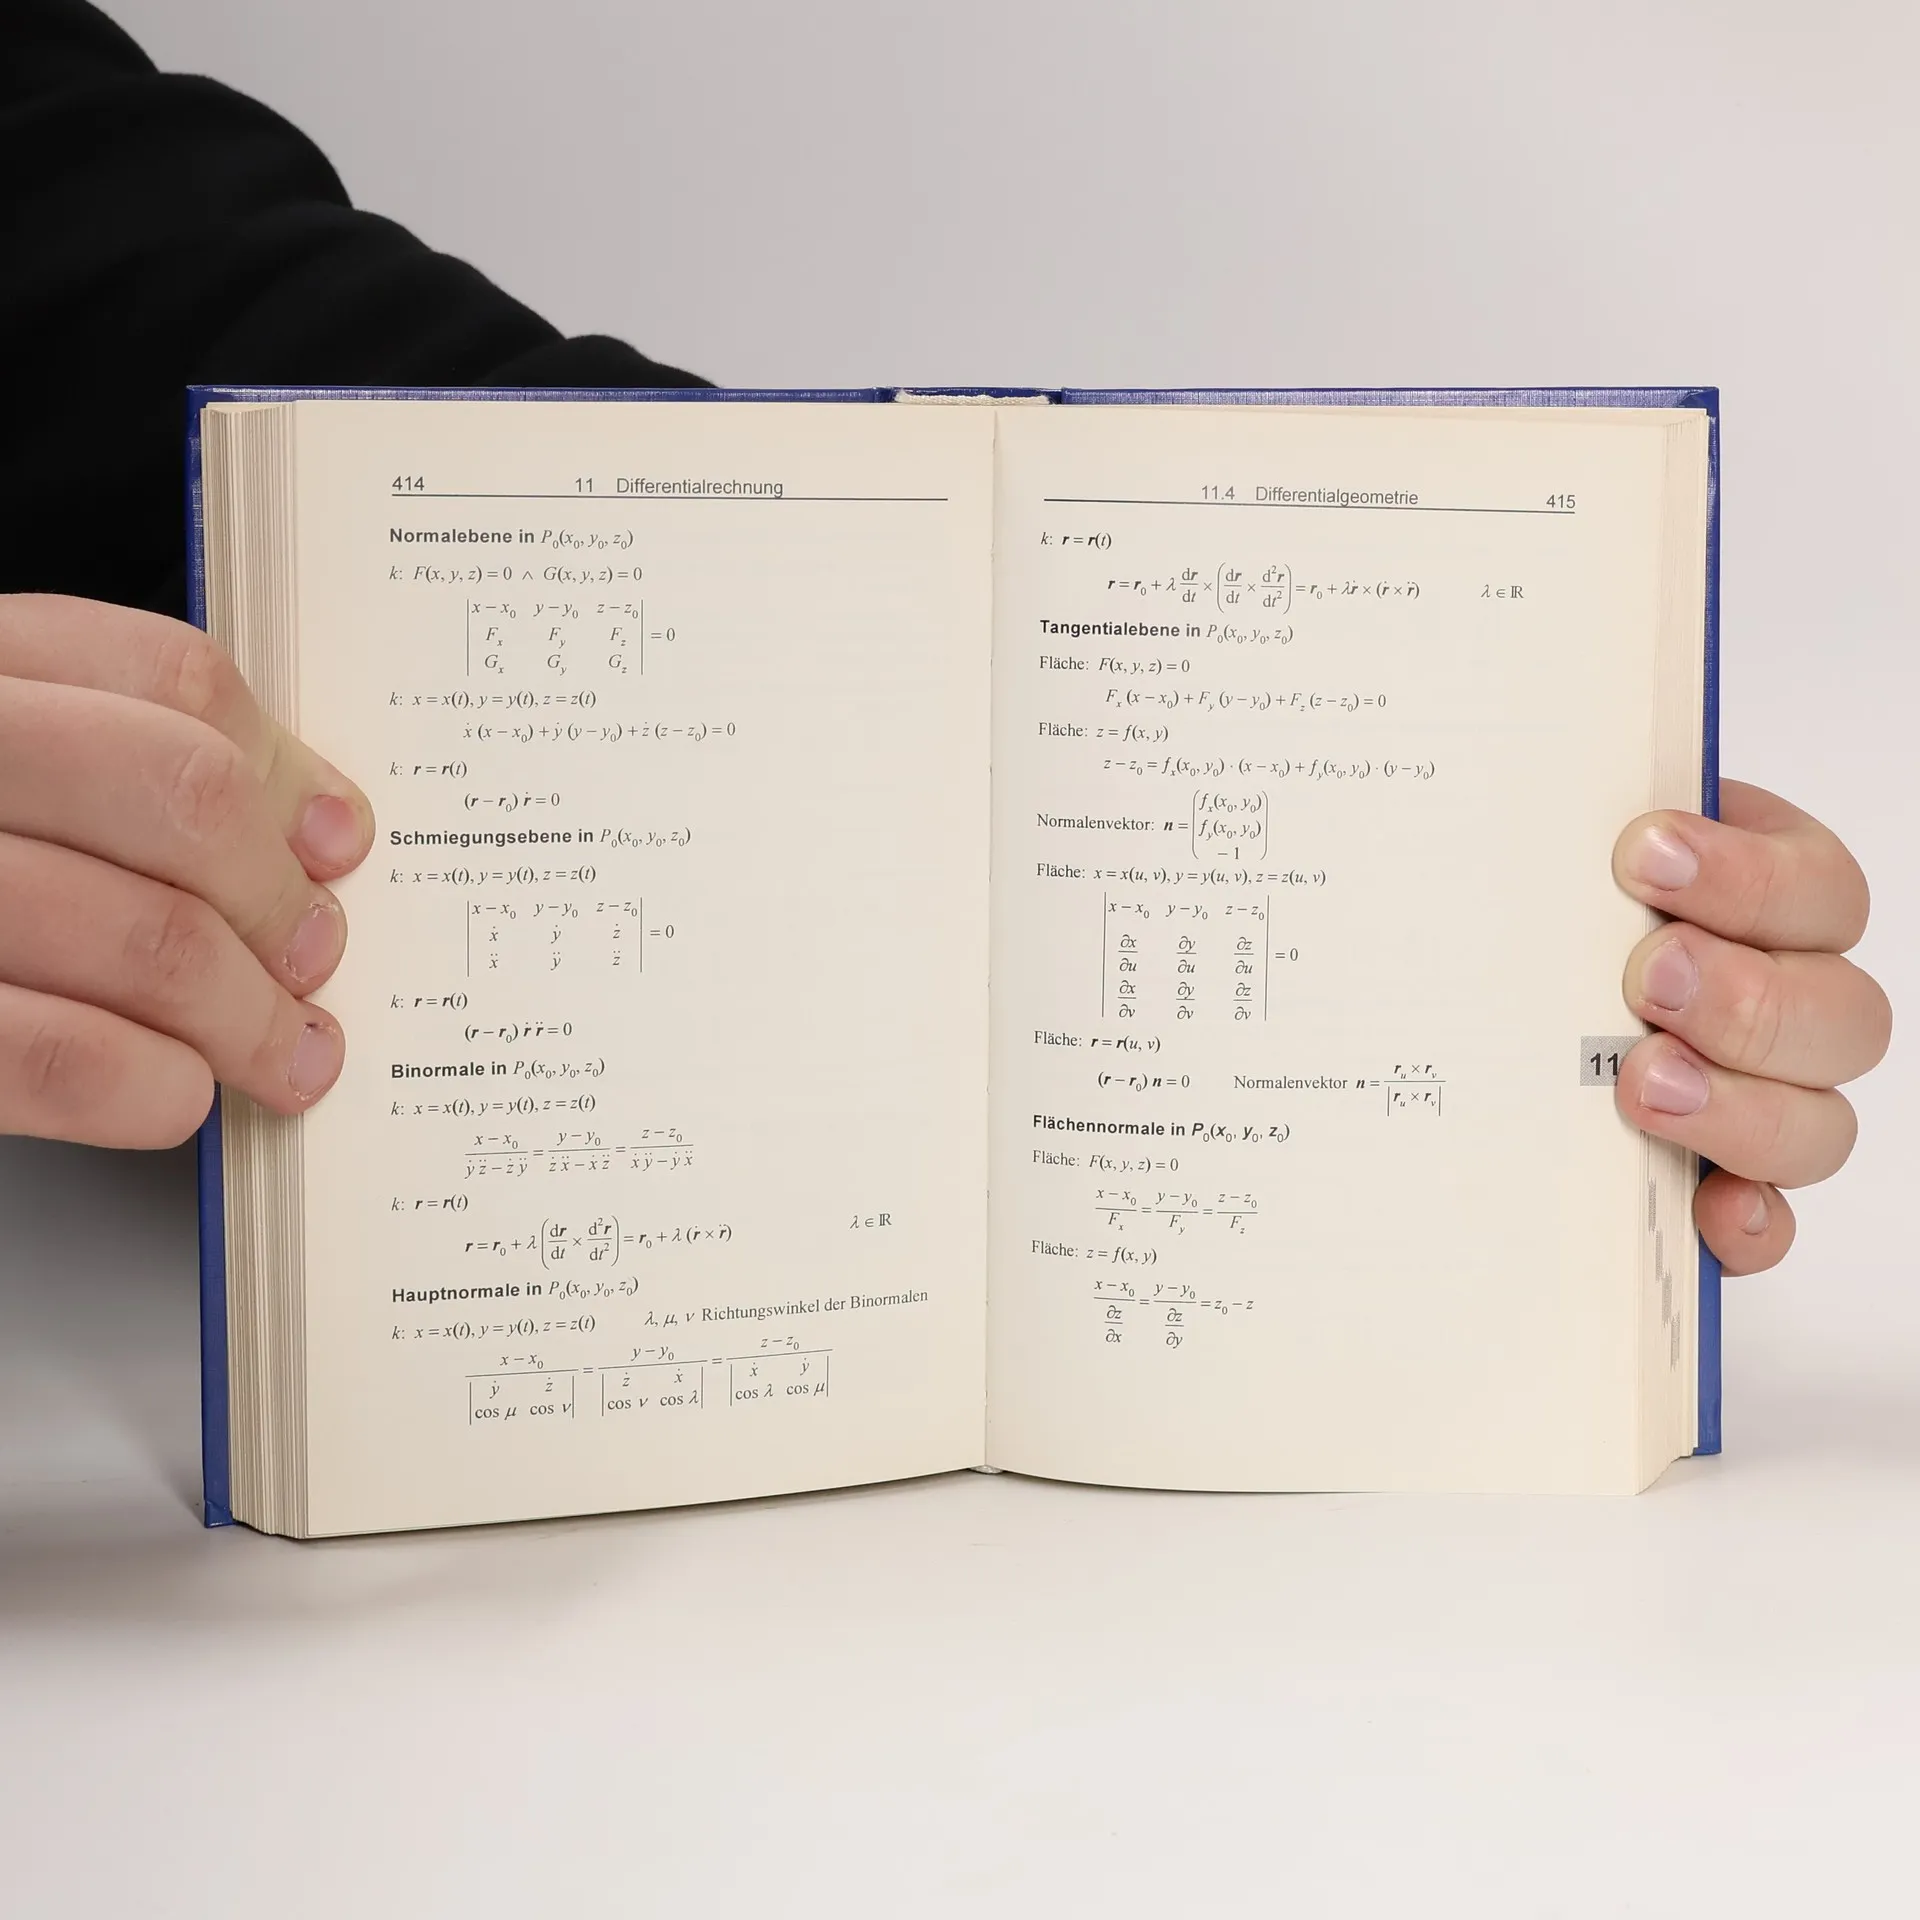 414 11 Differentialrechnung
Normalebene in P₀(x₀, y₀, z₀)
k: F(x, y, z) = 0 ∧ G(x, y, z) = 0
| x − x₀ y − y₀ z − z₀ |
| Fₓ F_y F_z | = 0
| Gₓ G_y G_z |
k: x = x(t), y = y(t), z = z(t)
ẋ (x − x₀) + ẏ (y − y₀) + ż (z − z₀) = 0
k: r = r(t)
(r − r₀) ṙ = 0
Schmiegungsebene in P₀(x₀, y₀, z₀)
k: x = x(t), y = y(t), z = z(t)
| x − x₀ y − y₀ z − z₀ |
| ẋ ẏ ż | = 0
| ẍ ÿ z̈ |
k: r = r(t)
(r − r₀) ṙ r̈ = 0
Binormale in P₀(x₀, y₀, z₀)
k: x = x(t), y = y(t), z = z(t)
(x − x₀)/(ẏ z̈ − ż ÿ) = (y − y₀)/(ż ẍ − ẋ z̈) = (z − z₀)/(ẋ ÿ − ẏ ẍ)
k: r = r(t)
r = r₀ + λ (dr/dt × d²r/dt²) = r₀ + λ (ṙ × r̈) λ ∈ ℝ
Hauptnormale in P₀(x₀, y₀, z₀)
k: x = x(t), y = y(t), z = z(t) λ, μ, ν Richtungswinkel der Binormalen
x − x₀ = y − y₀ = z − z₀
| ẏ ż | | ż ẋ | | ẋ ẏ |
| cos μ cos ν | | cos ν cos λ | | cos λ cos μ |
11.4 Differentialgeometrie 415
k: r = r(t)
r = r₀ + λ dr/dt × (dr/dt × d²r/dt²) = r₀ + λṙ × (ṙ × r̈) λ ∈ ℝ
Tangentialebene in P₀(x₀, y₀, z₀)
Fläche: F(x, y, z) = 0
Fₓ (x − x₀) + F_y (y − y₀) + F_z (z − z₀) = 0
Fläche: z = f(x, y)
z − z₀ = fₓ(x₀, y₀) · (x − x₀) + f_y(x₀, y₀) · (y − y₀)
fₓ(x₀, y₀)
Normalenvektor: n = f_y(x₀, y₀)
− 1
Fläche: x = x(u, v), y = y(u, v), z = z(u, v)
| x − x₀ y − y₀ z − z₀ |
| ∂x/∂u ∂y/∂u ∂z/∂u | = 0
| ∂x/∂v ∂y/∂v ∂z/∂v |
Fläche: r = r(u, v)
(r − r₀) n = 0 Normalenvektor n = (rᵤ × rᵥ)/|rᵤ × rᵥ|
11
Flächennormale in P₀(x₀, y₀, z₀)
Fläche: F(x, y, z) = 0
(x − x₀)/Fₓ = (y − y₀)/F_y = (z − z₀)/F_z
Fläche: z = f(x, y)
(x − x₀)/(∂z/∂x) = (y − y₀)/(∂z/∂y) = z₀ − z